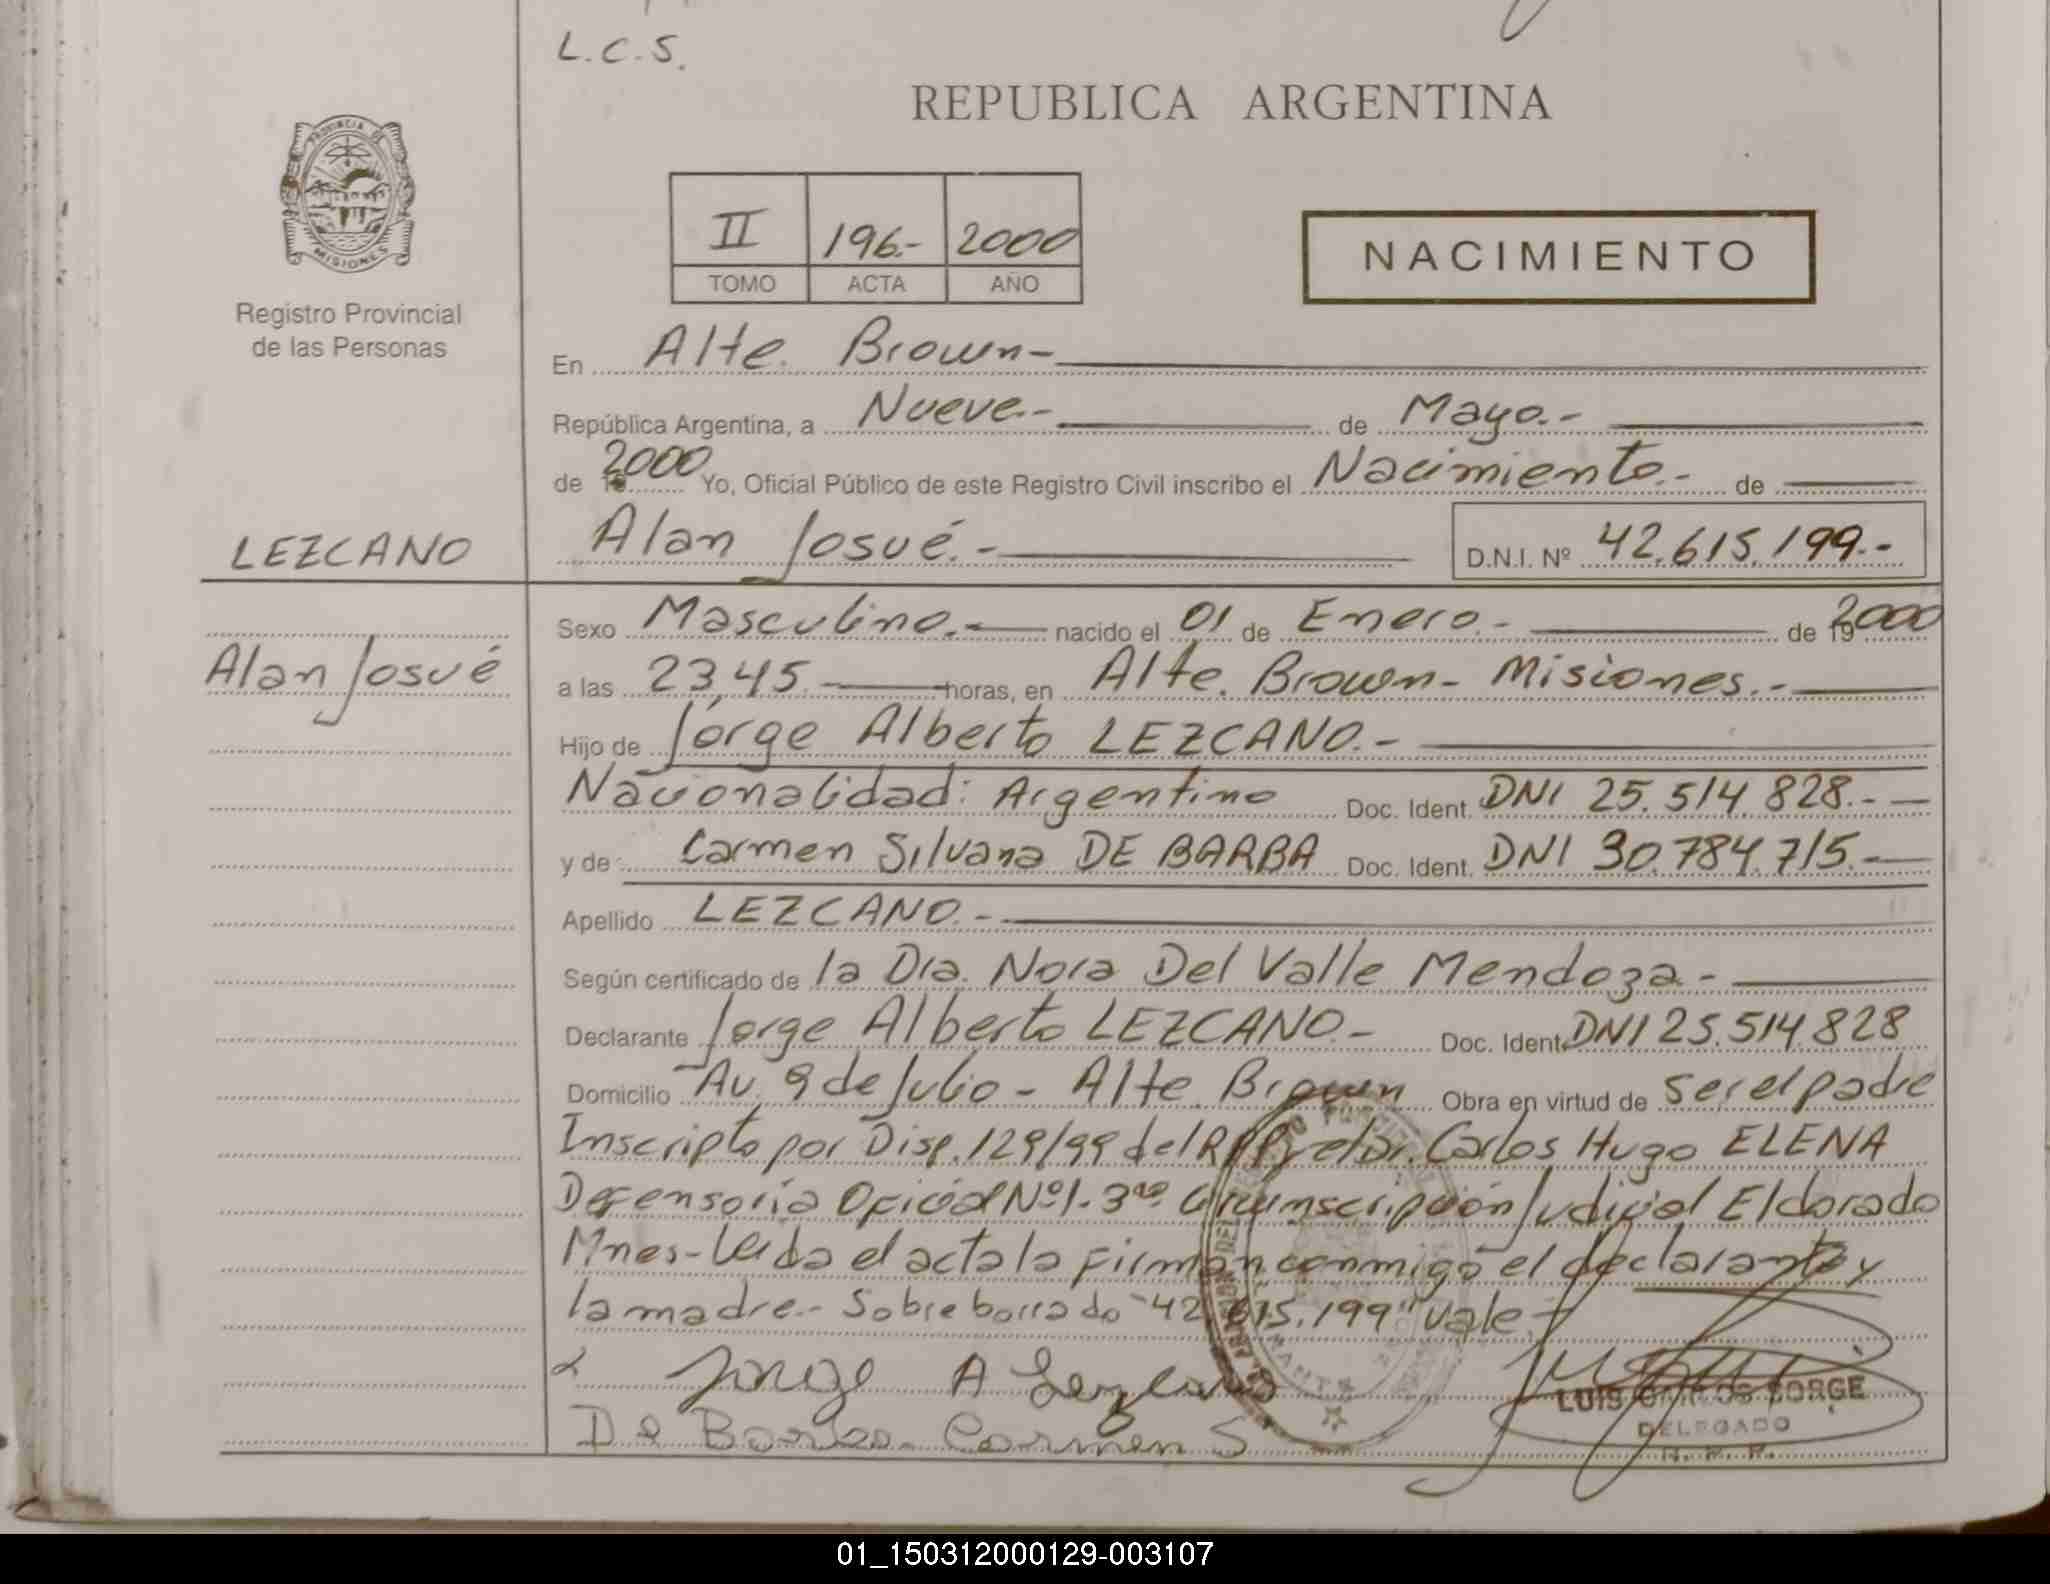 L.C.S.
REPUBLICA ARGENTINA
PROVINCIA DE
MISIONES
Registro Provincial
de las Personas
II 196.- 2000
TOMO ACTA AÑO
NACIMIENTO
En Alte. Brown-
República Argentina, a Nueve.- de Mayo.-
de 2000 Yo, Oficial Público de este Registro Civil inscribo el Nacimiento.- de
LEZCANO Alan Josué.- D.N.I. Nº 42.615.199.-
Alan Josué
Sexo Masculino.- nacido el 01 de Enero.- de 19 2000
a las 23,45.- horas, en Alte. Brown- Misiones.-
Hijo de Jorge Alberto LEZCANO.-
Nacionalidad: Argentino Doc. Ident. DNI 25.514.828.-
y de Carmen Silvana DE BARBA Doc. Ident. DNI 30.784.715.-
Apellido LEZCANO.-
Según certificado de la Dra. Nora Del Valle Mendoza-
Declarante Jorge Alberto LEZCANO.- Doc. Ident. DNI 25.514.828
Domicilio Av. 9 de Julio - Alte. Brown Obra en virtud de ser el padre
Inscripto por Disp. 129/99 del RPP y el Dr. Carlos Hugo ELENA
Defensoría Oficial Nº1- 3ra Circunscripción Judicial Eldorado
Mnes- Leida el acta la firman conmigo el declarante y
la madre.- Sobre borrado "42.615.199" vale.-
Jorge A Lezcano
De Barba Carmen S
LUIS CARLOS SORGE
DELEGADO
01_150312000129-003107